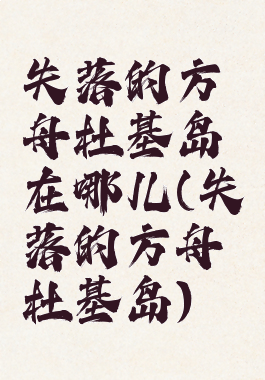 失落的方
舟杜基岛
在哪儿(失
落的方舟
杜基岛)